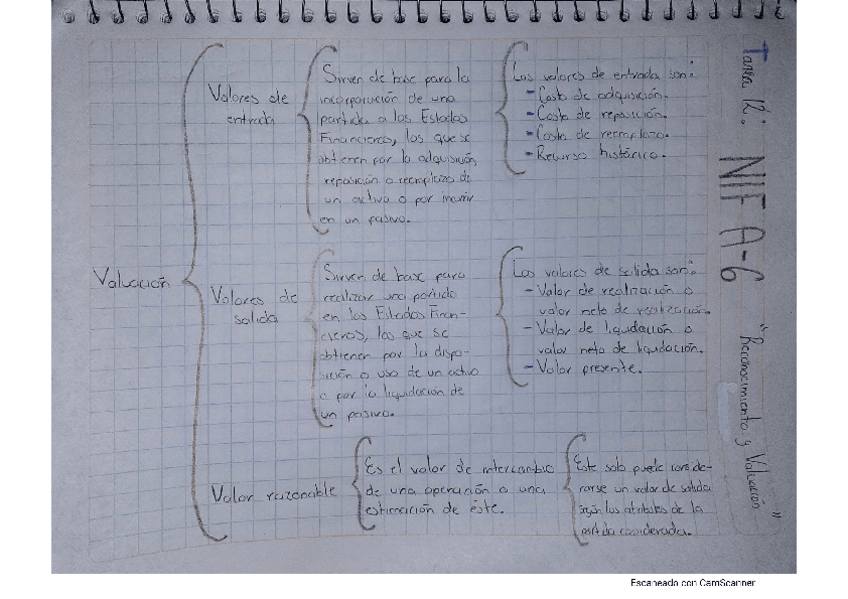 Tarea 12: NIF A-6 "Reconocimiento y Valuación"
Valuación
Valores de
entrada
Sirven de base para la
incorporación de una
partida a los Estados
Financieros, los que se
obtienen por la adquisición,
reposición o reemplazo de
un activo o por incurrir
en un pasivo.
Los valores de entrada son:
- Costo de adquisición.
- Costo de reposición.
- Costo de reemplazo.
- Recurso histórico.
Valores de
salida
Sirven de base para
realizar una partida
en los Estados Finan-
cieros, los que se
obtienen por la dispo-
sición o uso de un activo
o por la liquidación de
un pasivo.
Los valores de salida son:
- Valor de realización o
valor neto de realización.
- Valor de liquidación o
valor neto de liquidación.
- Valor presente.
Valor razonable
Es el valor de intercambio
de una operación o una
estimación de éste.
Este solo puede conside-
rarse un valor de salida
según los atributos de la
partida considerada.
Escaneado con CamScanner